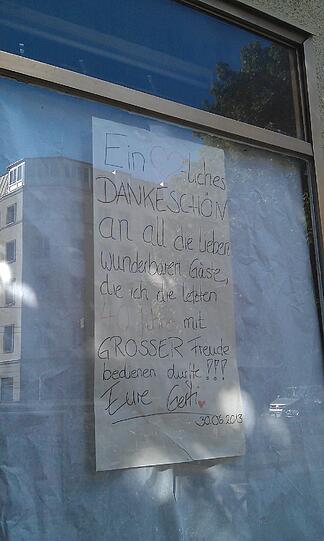 Ein ♡-liches
DANKESCHÖN
an all die lieben
wunderbaren Gäste,
die ich die letzten
mit
GROSSER Freude
bedienen durfte!!!
Eure Gerti
30.06.2013